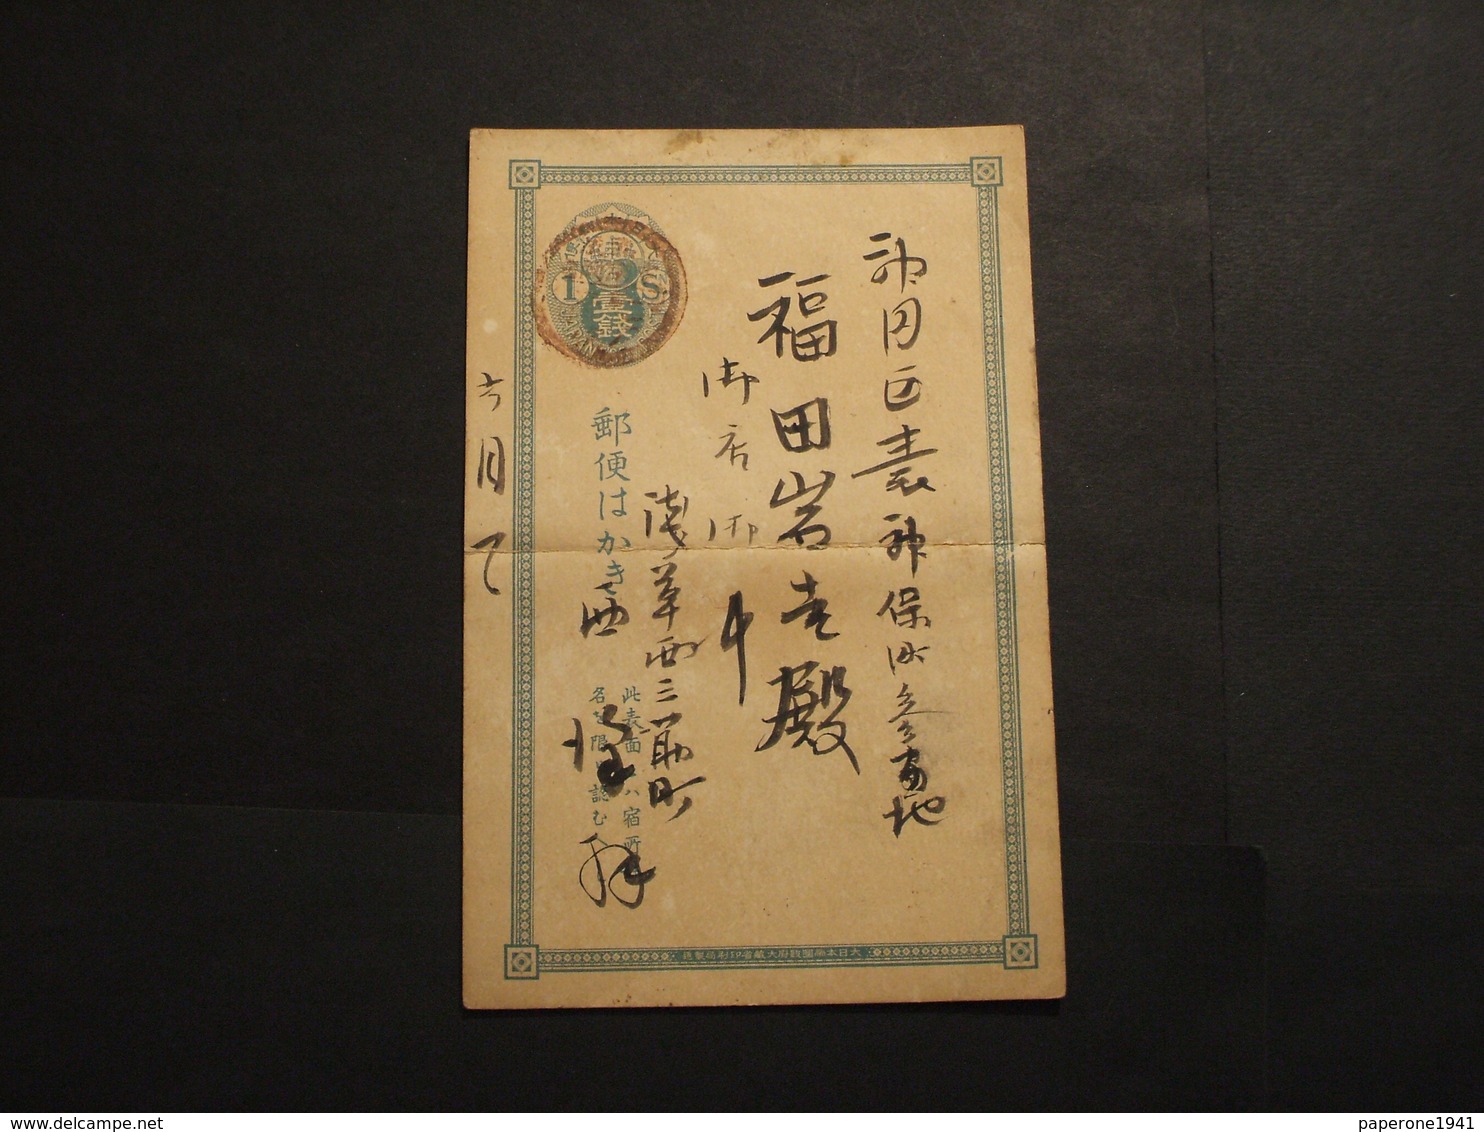 神田区表神保町参番地
福田岩吉殿
御店御中
浅草西三筋町
西
拝
六月
1 S
壹錢
郵便はかき
此表面ハ宿所
名
限
認む
大日本帝國政府大藏省印刷局製造
delcampe.net
paperone1941